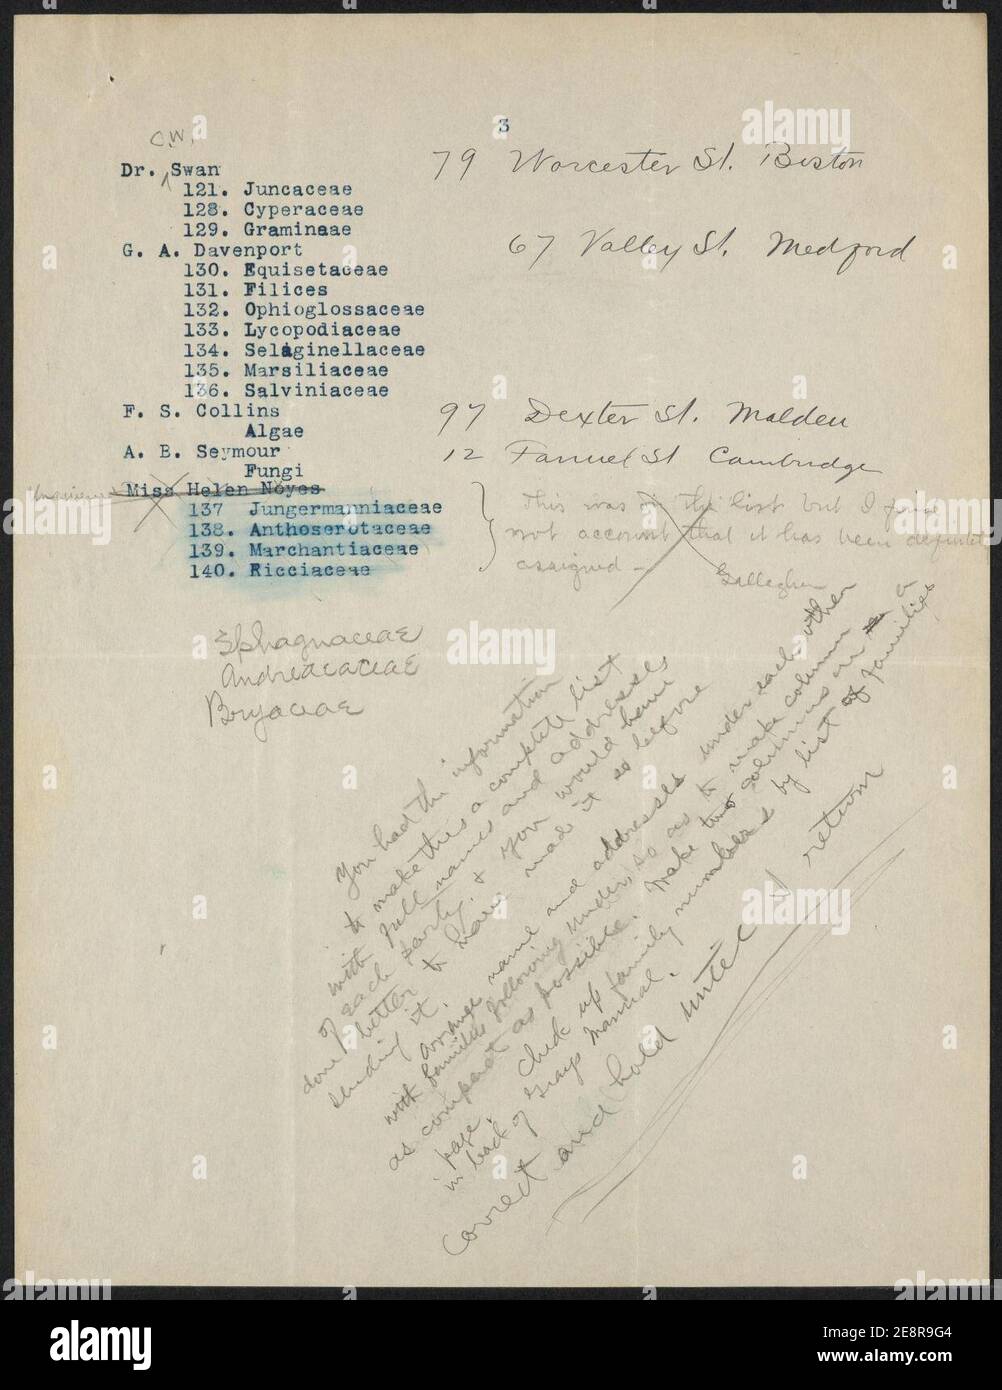 3
C.W.
Dr. Swan 79 Worcester St. Boston
121. Juncaceae
128. Cyperaceae
129. Gramineae
G. A. Davenport 67 Valley St. Medford
130. Equisetaceae
131. Filices
132. Ophioglossaceae
133. Lycopodiaceae
134. Selaginellaceae
135. Marsiliaceae
136. Salviniaceae
F. S. Collins 97 Dexter St. Malden
Algae
A. B. Seymour 12 Fannel St Cambridge
Fungi
Miss Helen Noyes
137 Jungermanniaceae This was on the list but I
138. Anthoserotaceae not account that it has been
139. Marchantiaceae assigned -
140. Ricciaceae Gallagher
Sphagnaceae
Andreaeaceae
Bryaceae
You had the information
to make this a complete list
with full names and addresses
of each party. & you would have
done better to have made it so before
sending it.
Arrange name and addresses under each other
with families following under, so as to make column
as compact as possible. Make two columns on a
page. Check up family numbers by list of families
in back of Grays Manual.
Correct and hold until I return
alamy
Image ID: 2E8R9G4
www.alamy.com